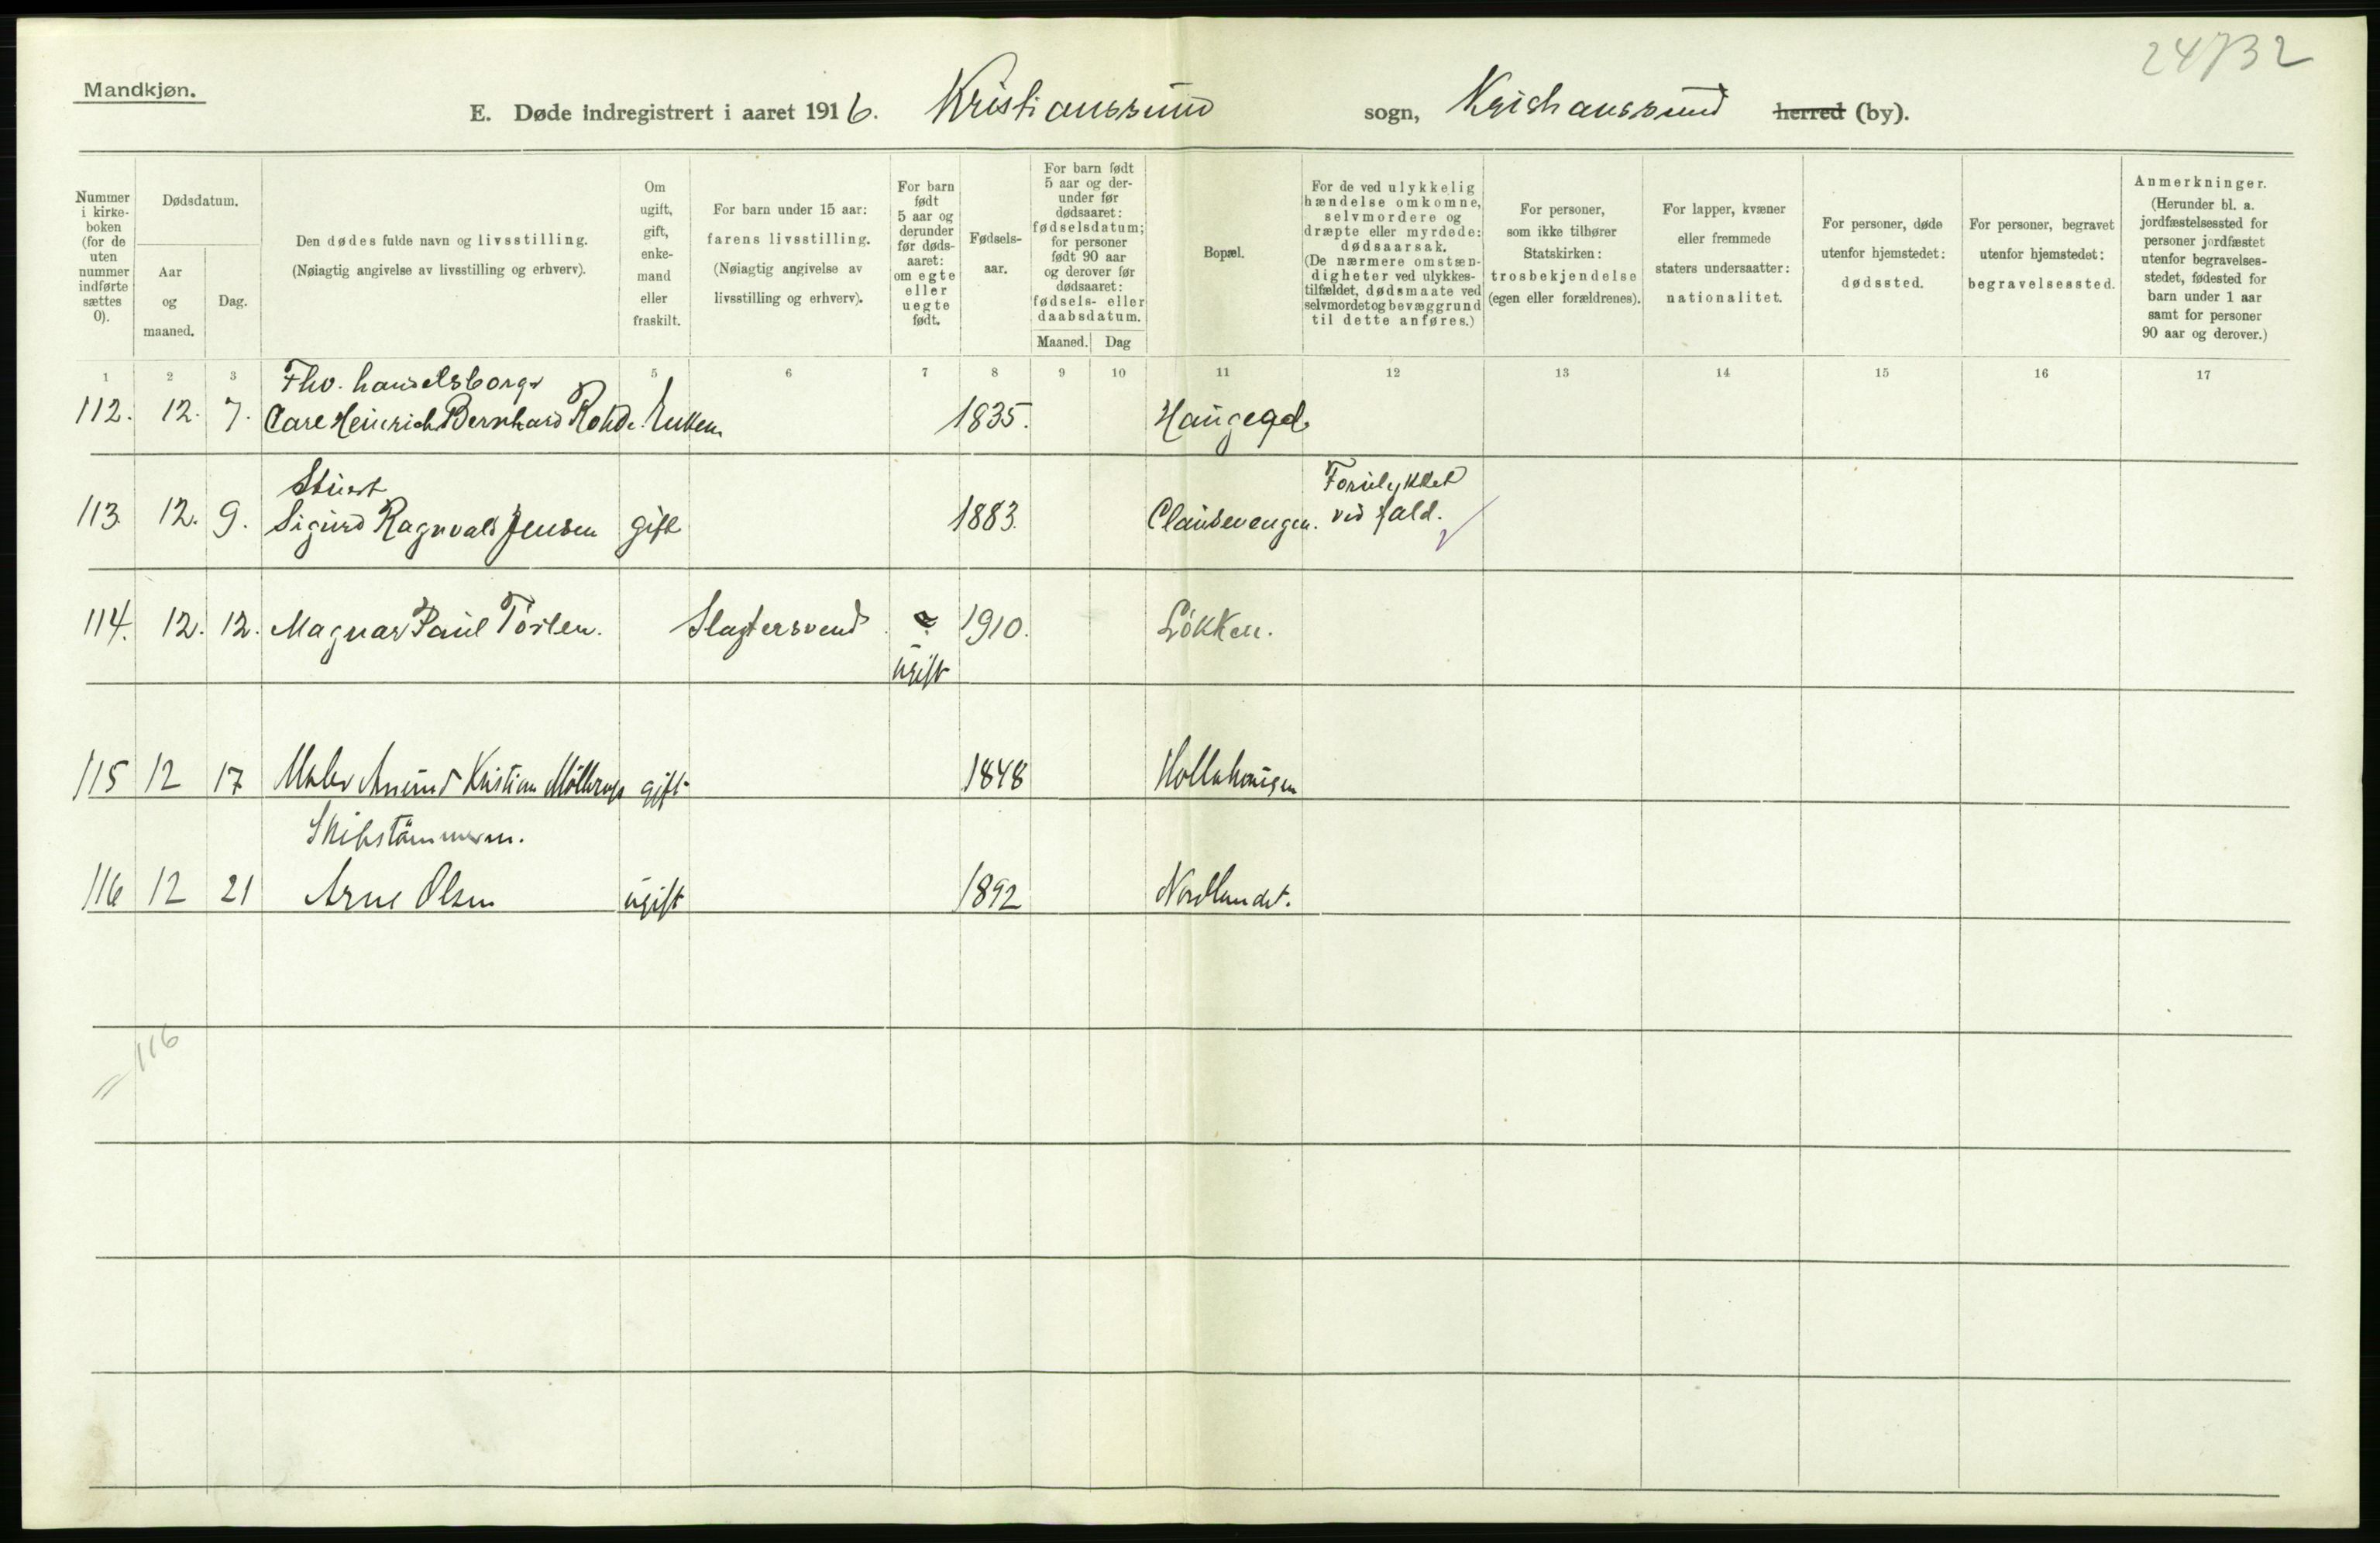 24732
Mandkjøn.
E. Døde indregistrert i aaret 1916. Kristianssund sogn, Kristianssund herred (by).
Nummer i kirke-boken (for de uten nummer indførte sættes 0).
Dødsdatum.
Aar og maaned.
Dag.
Den dødes fulde navn og livsstilling.
(Nøiagtig angivelse av livsstilling og erhverv).
Om ugift, gift, enke-mand eller fraskilt.
For barn under 15 aar: farens livsstilling.
(Nøiagtig angivelse av livsstilling og erhverv).
For barn født 5 aar og derunder før døds-aaret: om egte eller uegte født.
Fødsels-aar.
For barn født 5 aar og der-under før dødsaaret: fødselsdatum; for personer født 90 aar og derover før dødsaaret: fødsels- eller daabsdatum.
Maaned. Dag
Bopæl.
For de ved ulykkelig hændelse omkomne, selvmordere og dræpte eller myrdede: dødsaarsak.
(De nærmere omstæn-digheter ved ulykkes-tilfældet, dødsmaate ved selvmordet og bevæggrund til dette anføres.)
For personer, som ikke tilhører Statskirken: trosbekjendelse (egen eller forældrenes).
For lapper, kvæner eller fremmede staters undersaatter: nationalitet.
For personer, døde utenfor hjemstedet: dødssted.
For personer, begravet utenfor hjemstedet: begravelsessted.
Anmerkninger.
(Herunder bl. a. jordfæstelsessted for personer jordfæstet utenfor begravelses-stedet, fødested for barn under 1 aar samt for personer 90 aar og derover.)
1 2 3 5 6 7 8 9 10 11 12 13 14 15 16 17
Fhv. handelsborger
112. 12. 7. Carl Heinrich Bernhard Rohde. Enkem. 1835. Haugegd.
Stuert Forulykket
113. 12. 9. Sigurd Ragnvald Jensen gift 1883. Clausenengen. ved fald.
114. 12. 12. Magnar Paul Törlen. Slagtersvend e 1910. Løkken.
ugift
115 12 17 Maler Amund Kristian Møllerop gift 1848 Hollahaugen
Skibstömmerm.
116 12 21 Arne Olsen ugift 1892 Nordlandet.
116